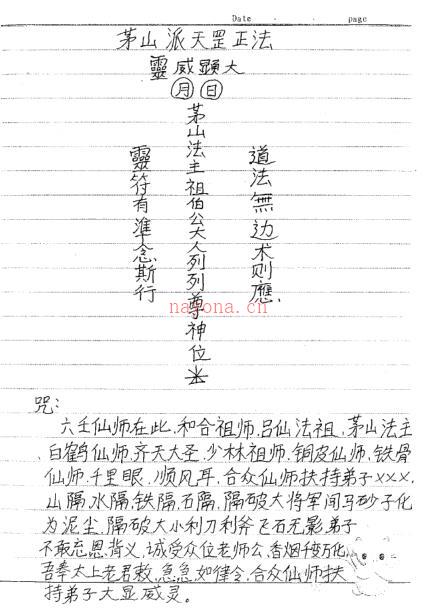 Date page
茅山派天罡正法
靈威顯大
月日
道法無边术则應
茅山法主祖伯公大人列列尊神位
靈符有準念斯行
nayona.cn
咒:
六壬仙师在此,和合祖师,吕仙法祖,茅山法主
白鹤仙师,齐天大圣,少林祖师,铜皮仙师,铁骨
仙师,千里眼,顺风耳,合众仙师扶持弟子×××,
山隔水隔,铁隔,石隔,隔破大将军间马砂子化
为泥尘,隔破大小利刀利斧飞石无影弟子
不敢忘恩,背义,诚受众位老师公,香烟千变万化,
吾奉太上老君敕,急急如律令,合众仙师扶
持弟子大显威灵.